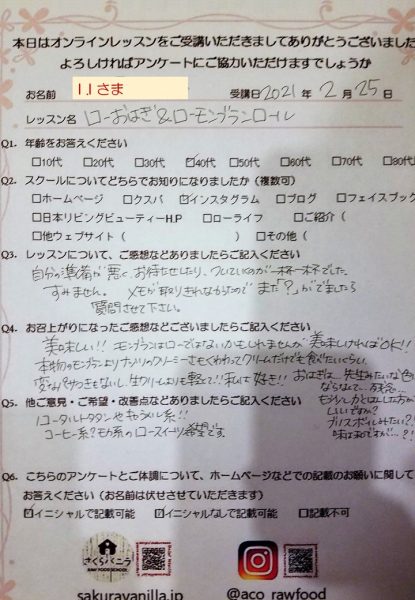 本日はオンラインレッスンをご受講いただきましてありがとうございました
よろしければアンケートにご協力いただけますでしょうか
お名前 I.Iさま 受講日2021年 2月 25日
レッスン名 ローおはぎ&ローモンブランロール
Q1. 年齢をお答えください
□10代 □20代 □30代 ☑40代 □50代 □60代 □70代 □80代
Q2. スクールについてどちらでお知りになりましたか（複数可）
□ホームページ □クスパ ☑インスタグラム □ブログ □フェイスブック
□日本リビングビューティーH.P □ローライフ □ご紹介（
□他ウェブサイト（ ） □その他（
Q3. レッスンについて、ご感想などありましたらご記入ください
自分の準備が悪く、お待たせしたり、ついていくのが一杯一杯でした。
すみません。 メモが取りきれなかったので"まだ?"がでましたら
質問させて下さい。
Q4. お召上がりになったご感想などございましたらご記入ください
美味しい!! モンブランはローではないかもしれませんが 美味しければOK!!
本物のモンブランよりナッツのクリーミーさもくわわってクリームだけでも食べたいくらい
変なパサつきもないし、生クリームよりも軽くて!!私は好き!! おはぎは、先生みたいな色に
ならなくて…
もう少しかとばした方が
いいですか?
味はまずまずですが…?!
Q5. 他ご意見・ご希望・改善点などありましたらご記入ください
ロータルトタタンやキャラメル系!!
コーヒー系?モカ系のロースイーツ希望です。
Q6. こちらのアンケートとご体調について、ホームページなどでの記載のお願いに関して
お答えください（お名前は伏せさせていただきます）
☑イニシャルで記載可能 ☑イニシャルなしで記載可能 □記載不可
さくらバニラ
RAW FOOD SCHOOL
sakuravanilla.jp @aco_rawfood